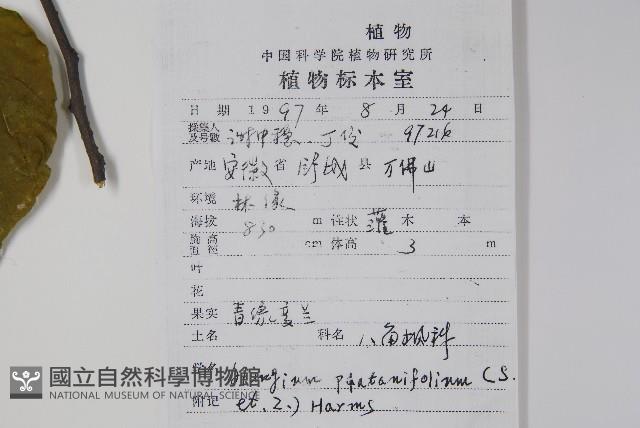 植物
中国科学院植物研究所
植物标本室
日期 1997 年 8 月 24 日
採集人及号数 谢中稳、丁俊 97216
产地 安徽省 舒城县 万佛山
环境 林缘
海拔 830 m 性状 灌木 本
胸高直徑 cm 体高 3 m
叶
花
果实 青绿变兰
土名 科名 八角枫科
学名 platanifolium (S.
附记 et. Z.) Harms
國立自然科學博物館
NATIONAL MUSEUM OF NATURAL SCIENCE